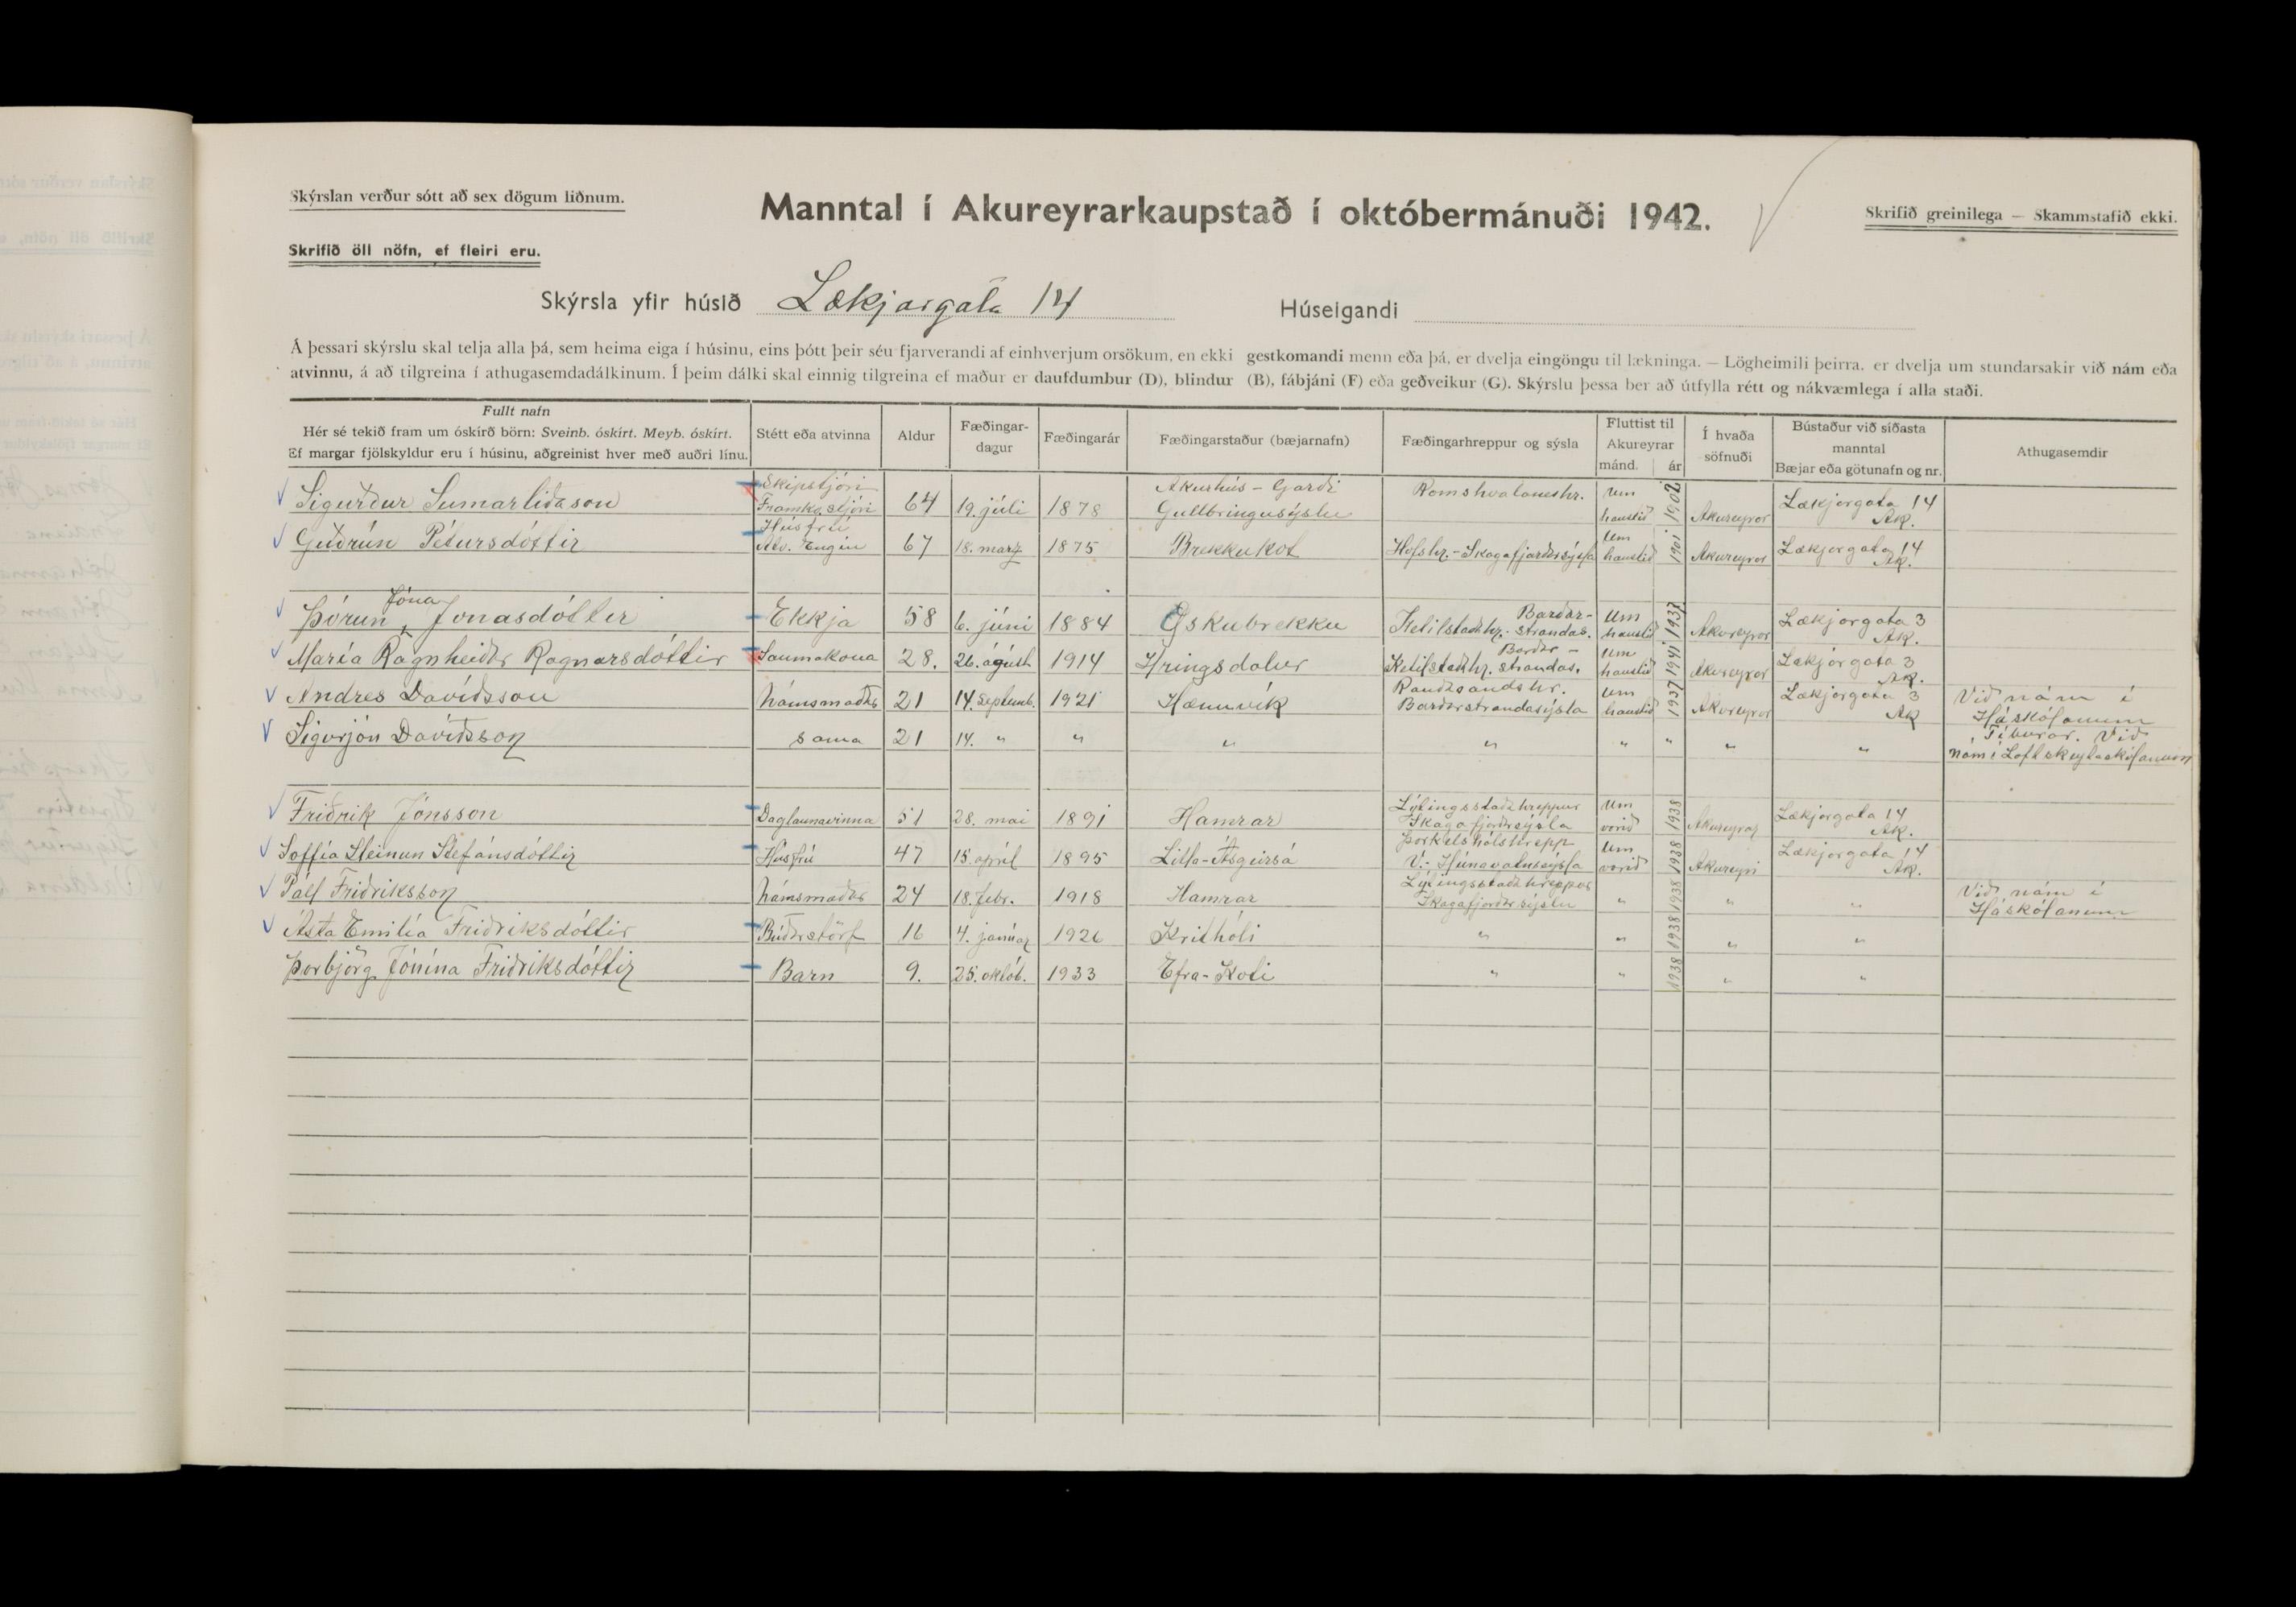 Skýrslan verður sótt að sex dögum liðnum.
Manntal í Akureyrarkaupstað í októbermánuði 1942.
Skrifið greinilega — Skammstafið ekki.
Skrifið öll nöfn, ef fleiri eru.
Skýrsla yfir húsið Lækjargata 14 Húseigandi
Á þessari skýrslu skal telja alla þá, sem heima eiga í húsinu, eins þótt þeir séu fjarverandi af einhverjum orsökum, en ekki gestkomandi menn eða þá, er dvelja eingöngu til lækninga. — Lögheimili þeirra, er dvelja um stundarsakir við nám eða
atvinnu, á að tilgreina í athugasemdadálkinum. Í þeim dálki skal einnig tilgreina ef maður er daufdumbur (D), blindur (B), fábjáni (F) eða geðveikur (G). Skýrslu þessa ber að útfylla rétt og nákvæmlega í alla staði.
Fullt nafn
Hér sé tekið fram um óskírð börn: Sveinb. óskírt. Meyb. óskírt.
Ef margar fjölskyldur eru í húsinu, aðgreinist hver með auðri línu.
Stétt eða atvinna
Aldur
Fæðingar-
dagur
Fæðingarár
Fæðingarstaður (bæjarnafn)
Fæðingarhreppur og sýsla
Fluttist til
Akureyrar
mánd. ár
Í hvaða
söfnuði
Bústaður við síðasta
manntal
Bæjar eða götunafn og nr.
Athugasemdir
Skipstjóri Akurhús - Garði Um
Sigurður Sumarliðason Framkv.stjóri 64 19. júli 1878 Gullbringusýslu Romshvalaneshr. haustið 1902 Akureyrar Lækjargata 14 Ak.
Húsfrú Um
Guðrún Pétursdóttir Atv. Engin 67 18. marz 1875 Brekkukot Hofshr. - Skagafjarðarsýsla haustið 1901 Akureyrar Lækjargata 14 Ak.
Jóna Barðar- Um
Þórun, Jonasdóttir Ekkja 58 6. júni 1884 Öskubrekku Ketilstaðahr. - strandas. haustið 1937 Akureyrar Lækjargata 3 Ak.
Barðar - Um
María Ragnheiður Ragnarsdóttir Saumakona 28. 26. ágúst 1914 Hringsdalur Ketilstaðahr. strandas. haustið 1941 Akureyrar Lækjargata 3 Ak.
Rauðasandshr. Um
Andres Davíðsson Námsmaður 21 14. septemb. 1921 Hænuvík Barðarstrandasýsla haustið 1937 Akureyrar Lækjargata 3 Ak Við nám í
Háskólanum
Sigurjón Davíðsson sama 21 14. " " " " " " " " Tíburar. Við
nám í Loftskeytaskólanum
Lýtingsstaðahreppur Um
Friðrik Jónsson Daglaunavinna 51 28. mai 1891 Hamrar Skagafjarðarsýsla vorið 1938 Akureyrar Lækjargata 14 Ak.
Þorkelshólshrepp Um
Soffía Steinun Stefánsdóttir Húsfrú 47 15. apríl 1895 Litla-Ásgeirsá V.- Húnavatnssýsla vorið 1938 Akureyri Lækjargata 14 Ak.
Lýtingsstaðahreppur
Páll Friðriksson Námsmaður 24 18. febr. 1918 Hamrar Skagafjarðarsýslu " 1938 " " Við nám í
Háskólanum
Ásta Emilía Friðriksdóttir Búðarstörf 16 4. janúar 1926 Krithóli " " 1938 " "
Þorbjörg Jónína Friðriksdóttir Barn 9. 25. októb. 1933 Efra-Koti " " 1938 " "